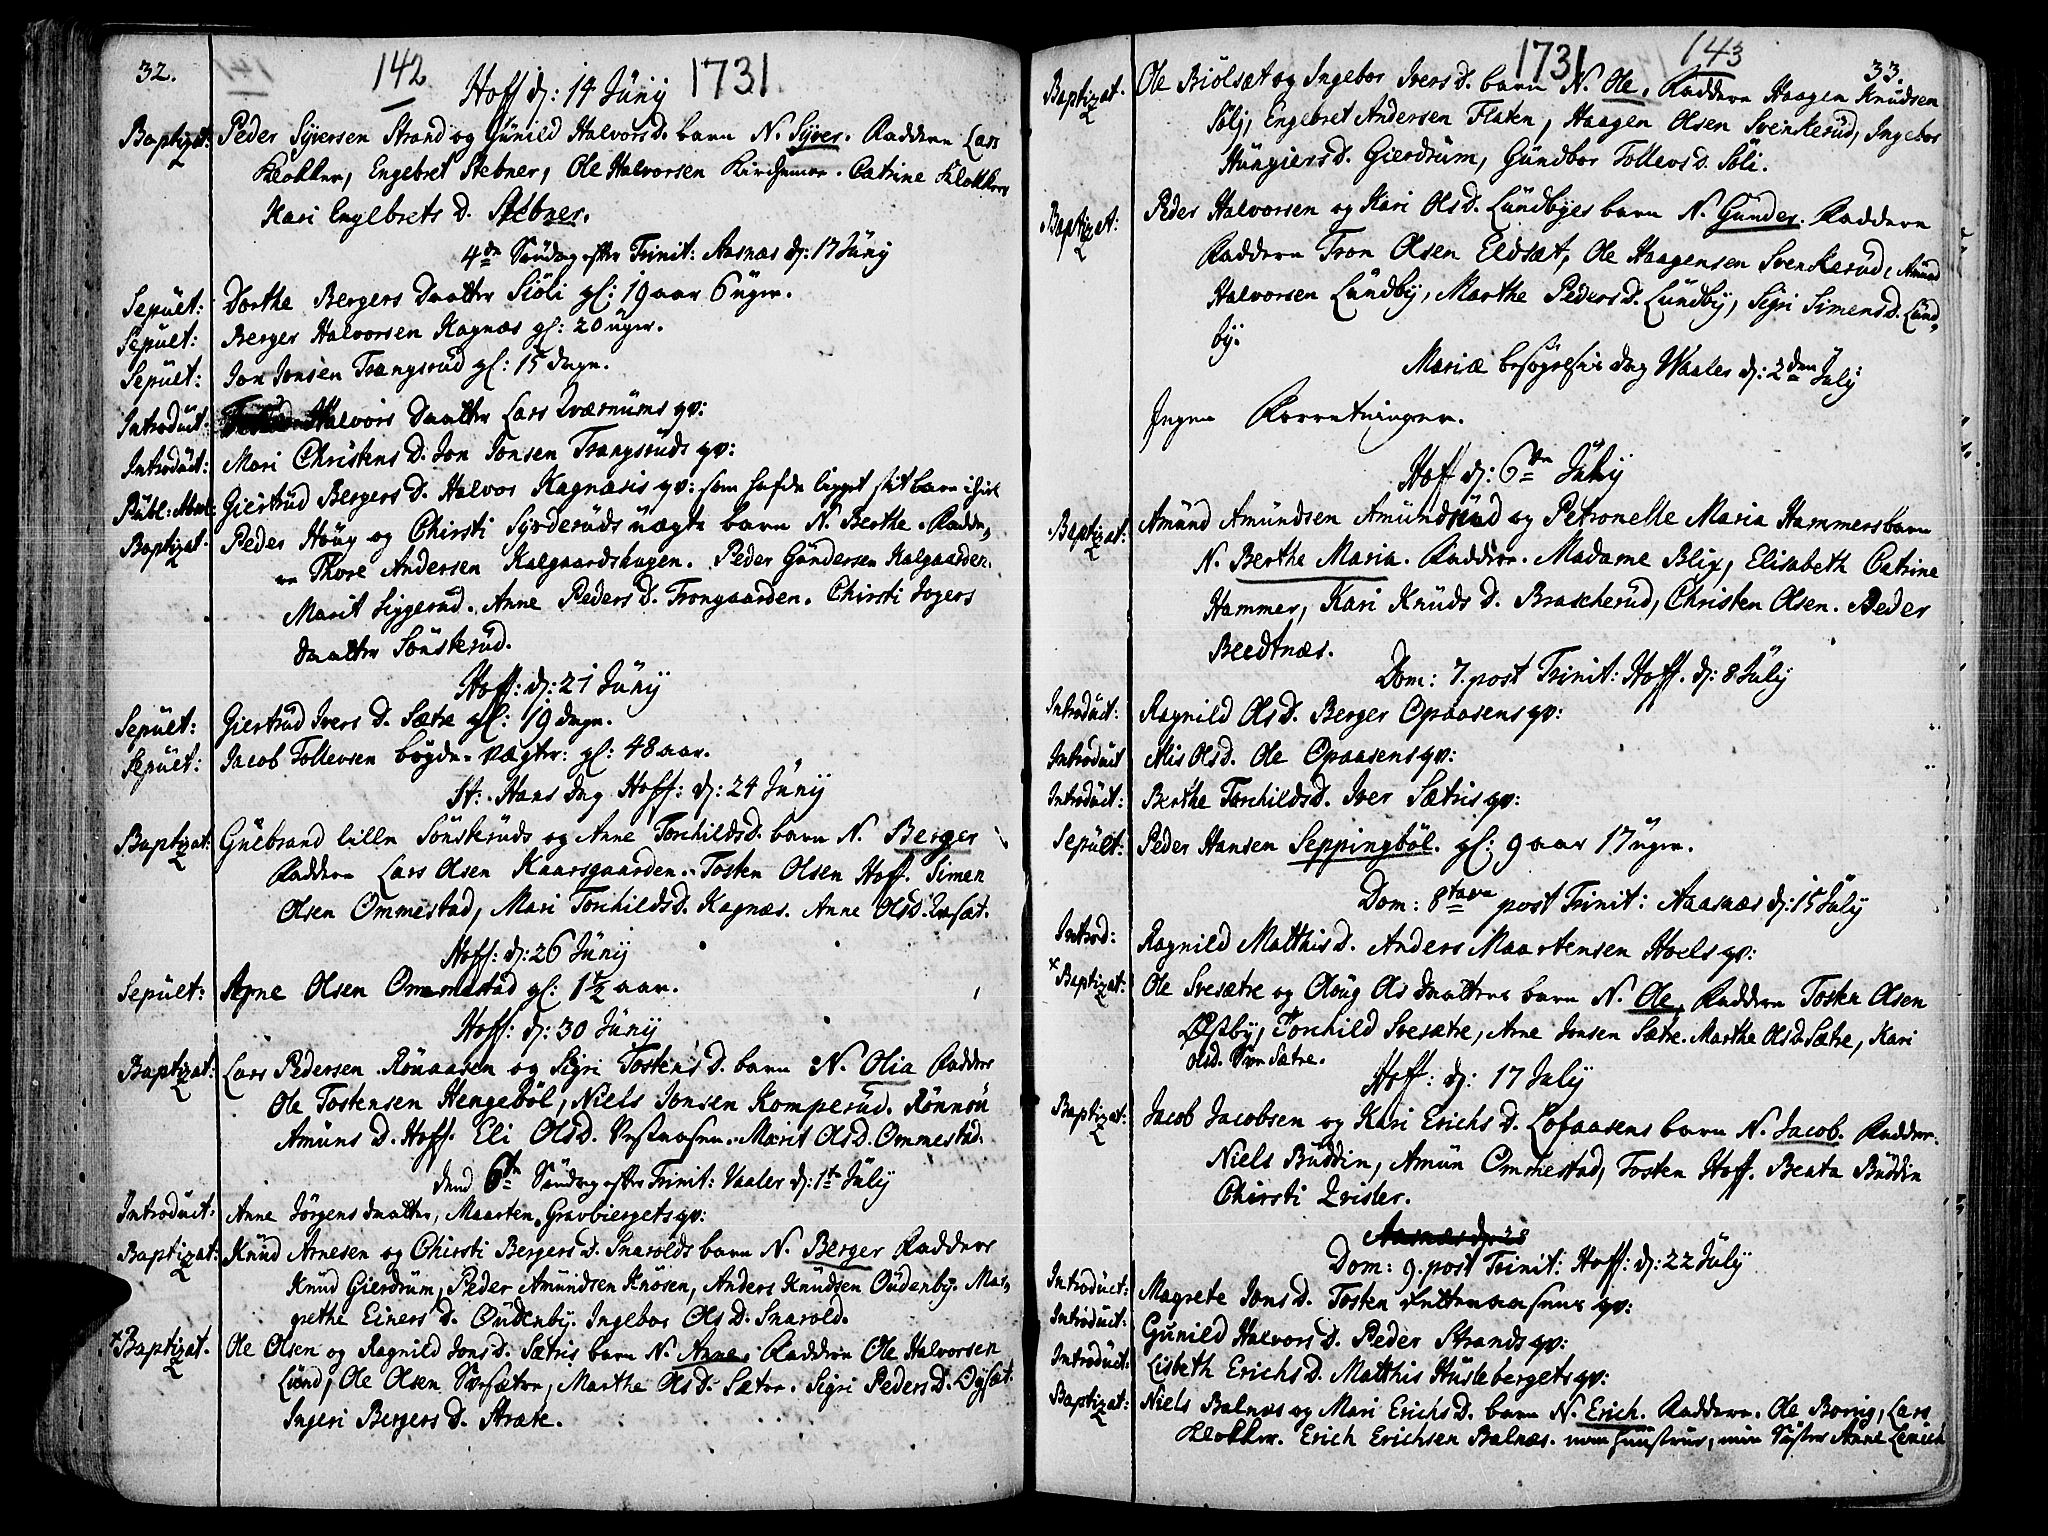 32. 142 1731
Hoff d: 14 Junij
Baptizat: Peder Syversen Strand og Gunild Halvors D. barn N. Syver. Faddere Lars
Klokker, Engebret Stebner, Ole Halvorsen Kirchemoe. Catrine Klokkers
Kari Engebrets D. Stebner.
4de Søndag efter Trinit: Aasnæs d: 17 Junij
Sepult: Dorthe Bergers Daatter Siøli gl: 19 aar 6 uger.
Sepult: Berger Halvorsen Kagnæs gl: 20 uger.
Sepult: Jon Jonsen Trangsrud gl: 15 dage.
Introduct: Halvors Daatter Lars Qværnums qv:
Introduct: Mari Christens D. Jon Jonsen Trangsruds qv:
Publ: Abs: Giertrud Bergers D. Halvor Kagnæsis qv: som hafde ligget sit barn ihiel
Baptizat. Peder Houg og Chirsti Syvderuds uægte barn N. Berthe. Fadde,,
re Thore Andersen Kalgaardshagen. Peder Gundersen Kalgaarden.
Marit Liggerud. Anne Peders D. Trongaarden. Chirsti Jogers
daatter Sønskerud.
Hoff: d: 21 Junij
Sepult: Giertrud Ivers D. Sætre gl: 19 dage.
Sepult: Jacob Tollevsen bøyde-vægter: gl: 48 aar.
St: Hans dag Hoff: d: 24 Junij
Baptizat: Gulbrand lille Sønskeruds og Anne Torchilds D. barn N. Berger
Faddere Lars Olsen Kaarsgaarden. Tosten Olsen Hoff. Simen
Olsen Ommestad, Mari Torchilds D. Kagnæs. Anne Ols D.
Hoff: d: 26 Junij
Sepult: Arne Olsen Ommestad gl: 1½ aar.
Hoff: d: 30 Junij
Baptizat: Lars Pedersen Rønaasen og Sigri Tostens D. barn N. Olia Faddere
Ole Tostensen Hengebøl, Niels Jonsen Komperud. Rønnou
Amuns D. Hoff. Eli Ols D. Marit Ols D. Ommestad.
Dend 6te Søndag efter Trinit: Vaaler d: 1te Julij
Introduct. Anne Jørgens daatter, Maarten Gravbiergets qv:
Baptizat: Knud Arnesen og Chirsti Bergers D. Snarolds barn N. Berger Faddere
Knud Gierdrum, Peder Amundsen Knøsen, Anders Knudsen Oudenby. Mar,
grethe Einers D. Oudenby. Ingebor Ols D. Snarold.
*Baptizat. Ole Olsen og Ragnild Jons D. Sætris barn N. Anne. Faddere Ole Halvorsen
Lund, Ole Olsen Sørsæter, Marthe Ols D. Sæter. Sigri Peders D. Øysæt.
Ingeri Bergers D. Stræte.
1731 143 33.
Baptizat. Ole Biølsæt og Ingebor Ivers D. barn N. Ole. Faddere Haagen Knudsen
Sølj, Engebret Andersen Flaten, Haagen Olsen Svenkerud, Ingebor
Hungiers D. Gierdrum, Gundbor Tollevs D. Søli.
Baptizat: Peder Halvorsen og Kari Ols D. Lundbyes barn N. Gunder. Faddere
Faddere Tron Olsen Eldsæt, Ole Haagensen Svenkerud, Amund
Halvorsen Lundby, Marthe Peders D. Lundby, Sigri Simens D. Lund,,
by.
Mariæ besøgelsis dag Waaler d: 2den Julij
Ingen Forretninger.
Hoff d: 6te Julij
Baptizat: Amund Amundsen Amundrud og Petronelle Maria Hammers barn
N. Berthe Maria. Faddere. Madame Blix, Elisabeth Catrine
Hammer, Kari Knuds D. Brascherud, Christen Olsen. Peder
Beedtnæs.
Dom: 7. post Trinit: Hoff. d: 8 Julij
Introduct: Ragnild Ols D. Berger Opaasens qv:
Introduct Alis Ols D. Ole Opaasens qv:
Introduct: Berthe Torchilds D. Iver Sætris qv:
Sepult: Peder Hansen Seppingbøl. gl: 9 aar 17 uger.
Dom: 8tava post Trinit: Aasnæs d: 15 Julij
Introd: Ragnild Matthis D. Anders Maartensen Hoels qv:
*Baptizat: Ole Svesætre og Oloug Ols daatters barn N. Ole. Faddere Tosten Olsen
Østby, Torchild Svesætre, Arne Jonsen Sætre. Marthe Ols D. Sætre, Kari
Ols D. Sætre.
Hoff: d: 17 Julij
Baptizat: Jacob Jacobsen og Kari Erichs D. Lofaasens barn N. Jacob. Faddere.
Niels Buddin, Amun Ommestad, Tosten Hoff. Beata Buddin
Chirsti Qvisler.
Aasnæs d: 28
Dom: 9. post Trinit: Hoff: d: 22 Julij
Introduct: Magrete Jons D. Tosten qv:
Introduct: Gunild Halvors D. Peder Strands qv:
Introduct: Lisbeth Erichs D. Matthis Huslebergets qv:
Baptizat: Niels Balnæs og Mari Erichs D. barn N. Erich. Faddere. Ole Borrig, Lars
Klokker. Erich Erichsen Balnæs. min hustrue, min Søster Anne